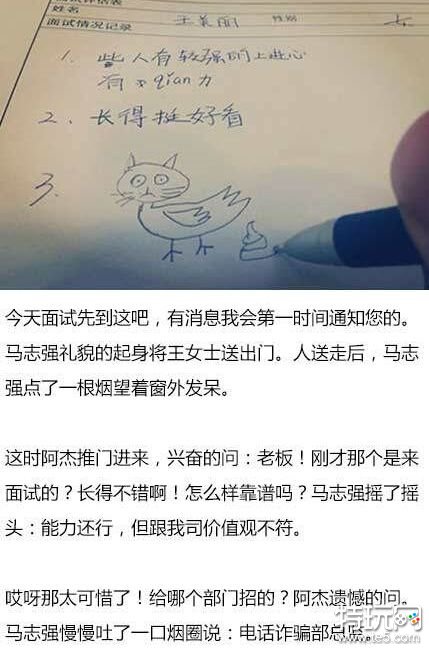 面试评估表
姓名 王美丽 性别 女
面试情况记录
1. 些人有较强的上进心
有 qian力
2、长得挺好看
3.
今天面试先到这吧，有消息我会第一时间通知您的。
马志强礼貌的起身将王女士送出门。人送走后，马志
强点了一根烟望着窗外发呆。
这时阿杰推门进来，兴奋的问：老板！刚才那个是来
面试的？长得不错啊！怎么样靠谱吗？马志强摇了摇
头：能力还行，但跟我司价值观不符。
哎呀那太可惜了！给哪个部门招的？阿杰遗憾的问。
马志强慢慢吐了一口烟圈说：电话诈骗部总监。
特玩网
www.te5.com